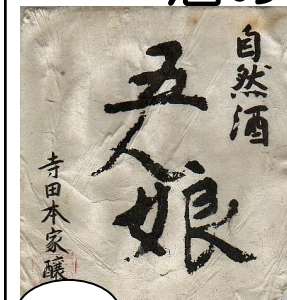 自然酒
五人娘
寺田本家醸